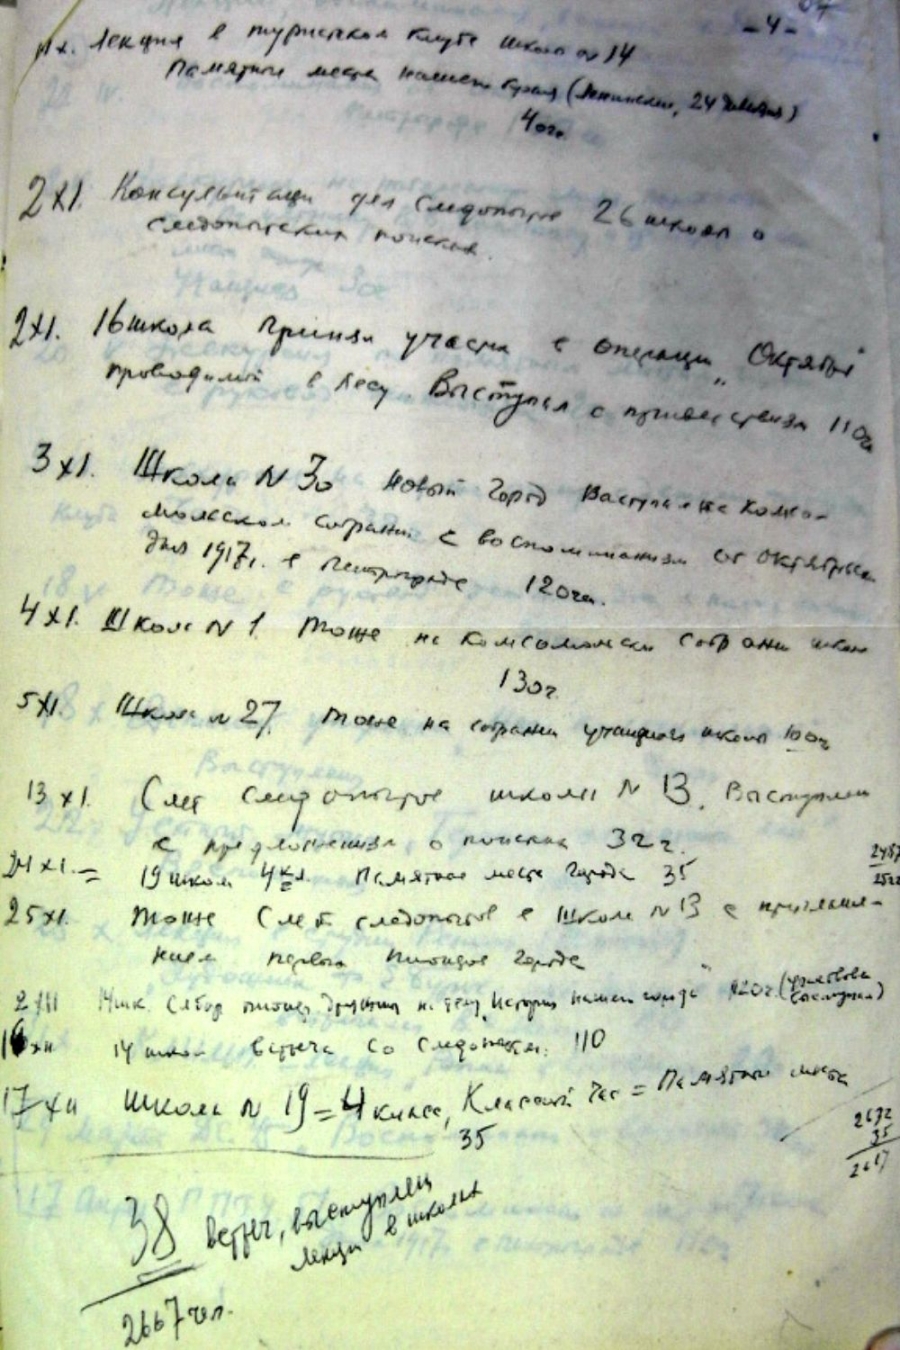 - 4 -
Лекция в туристском клубе школы № 14
Памятные места нашего края (Ленинские, 24 )
40ч.
2 XI. Консультация для следопытов 26 школы о
следопытских поисках.
2 XI. 16 школа Приняла участие в операции "Октябрь"
проводимой в лесу Выступал с приветствием 110ч
3 XI. Школа N 30 Новый Город Выступал на комсо-
мольском собрании с воспоминаниями об Октябрьских
днях 1917г. в Петрограде 120ч.
4 XI. Школа N 1. Тоже на комсомольском собрании школы
130ч.
5 XI. Школа N 27. Тоже на собрании учащихся школы 100ч
13 XI. Слет следопытов школы N 13. Выступлен
с предложением о поисках 32ч.
24 XI. = 19 школа 4 кл. Памятные места Города 35
25 XI. Тоже Слет следопытов в Школе N 13 с приглаше-
нием первых пионеров Города
2 XII 14 шк. Сбор пионер. дружины на тему "История нашего города" 120ч.
16 XII 14 школа встреча со следопытами. 110
17 XII Школа N 19 = 4 класс, Классный час = Памятные места
35
2632
35
2667
38 встреч, выступлен
лекции в школах
2667 чел.